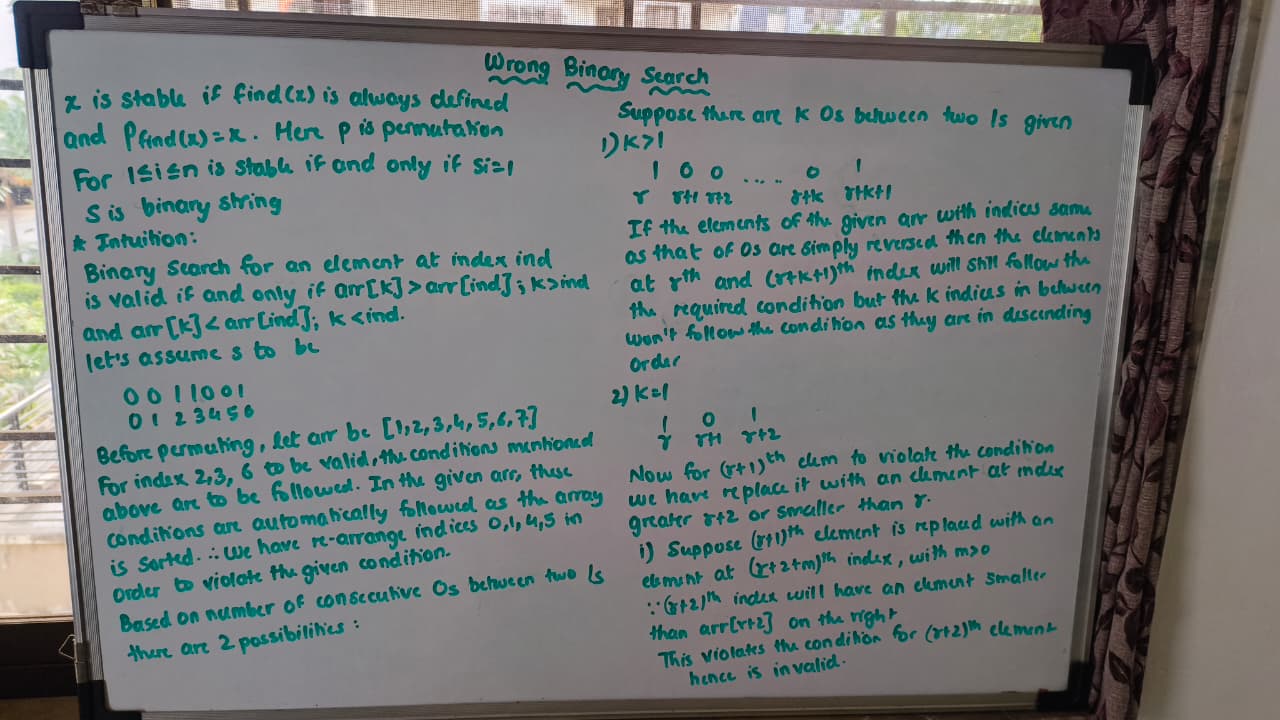 Wrong Binary Search
x is stable if find(x) is always defined
and Pfind(x)=x. Here p is permutation
For 1≤i≤n is stable if and only if si=1
S is binary string
* Intuition:
Binary Search for an element at index ind
is valid if and only if arr[k]>arr[ind]; k>ind
and arr[k]<arr[ind]; k<ind.
let's assume s to be
0 0 1 1 0 0 1
0 1 2 3 4 5 6
Before permuting, let arr be [1,2,3,4,5,6,7]
For index 2,3, 6 to be valid, the conditions mentioned
above are to be followed. In the given arr, these
conditions are automatically followed as the array
is sorted. ∴ we have re-arrange indices 0,1,4,5 in
order to violate the given condition.
Based on number of consecutive 0s between two 1s
there are 2 possibilities:
Suppose there are K 0s between two 1s given
1) K>1
1 0 0 .... 0 1
r r+1 r+2 r+k r+k+1
If the elements of the given arr with indices same
as that of 0s are simply reversed then the elements
at rth and (r+k+1)th index will still follow the
the required condition but the k indices in between
won't follow the condition as they are in descending
order
2) K=1
1 0 1
r r+1 r+2
Now for (r+1)th elem to violate the condition
we have replace it with an element at index
greater r+2 or smaller than r.
i) Suppose (r+1)th element is replaced with an
element at (r+2+m)th index, with m>0
∵ (r+2)th index will have an element smaller
than arr[r+2] on the right
This violates the condition for (r+2)th element
hence is invalid.